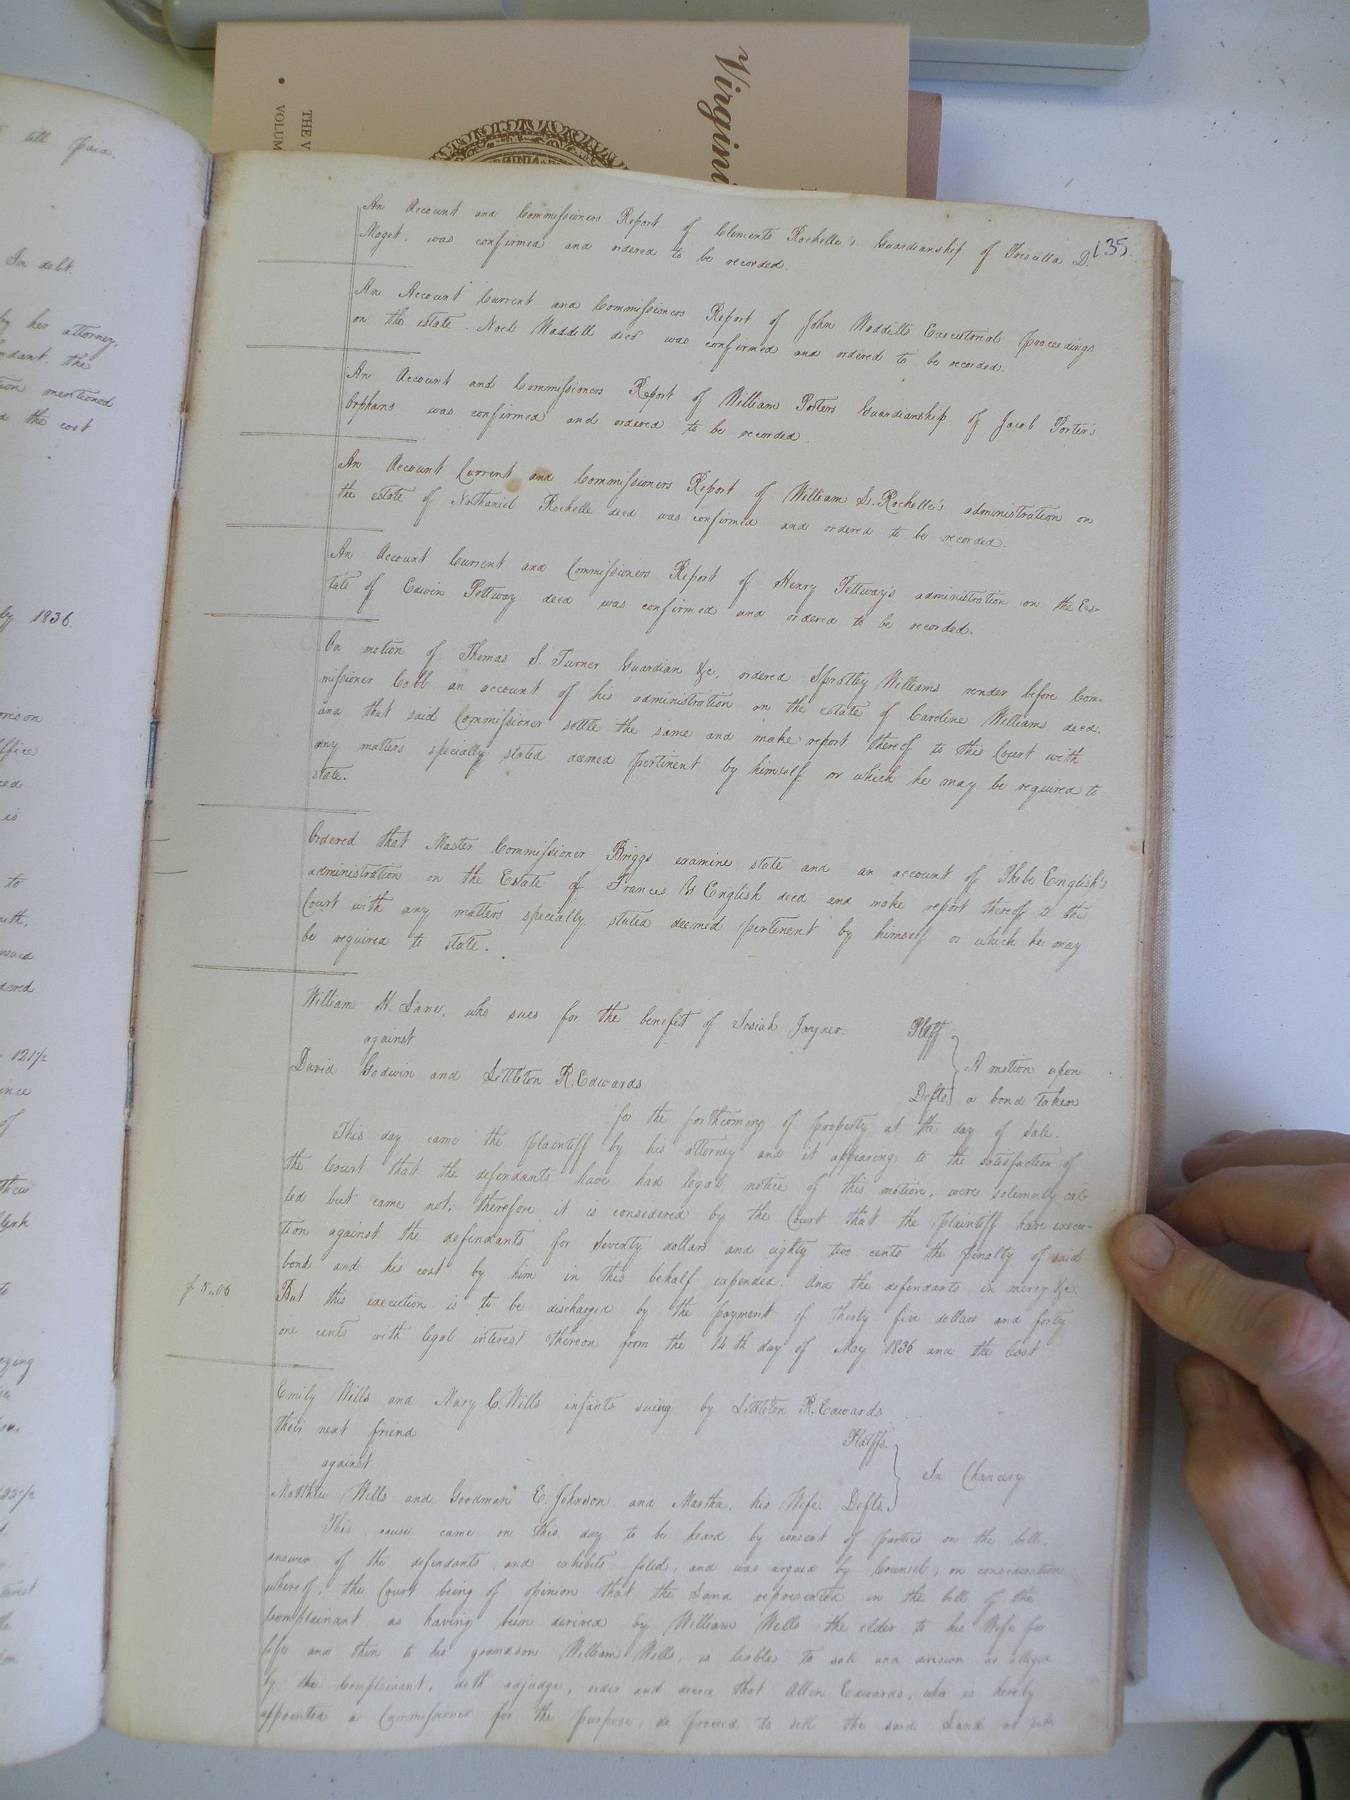 Virgini
THE V
VOLUM
all paid.
In debt.
by her attorney,
ndant. the
ion mentioned
d the cost
ly 1836.
135
An Account and Commissioners Report of Clements Rochelle's Guardianship of Priscilla D.
Maget. was confirmed and ordered to be recorded.
An Account Current and Commissioners Report of John Waddill's Executorial proceedings
on the estate. Noel Waddill decd was confirmed and ordered to be recorded.
An Account and Commissioners Report of William Porters Guardianship of Jacob Porter's
Orphans was confirmed and ordered to be recorded.
An Account Current and Commissioners Report of William L. Rochelle's administration on
the estate of Nathaniel Rochelle decd was confirmed and ordered to be recorded.
An Account Current and Commissioners Report of Henry Pettway's administration on the Es-
tate of Edwin Pettway decd was confirmed and ordered to be recorded.
On motion of Thomas S. Turner Guardian &c. ordered Spratley Williams render before Com-
missioner Cobb an account of his administration on the estate of Caroline Williams decd.
and that said Commissioner settle the same and make report thereof to this Court with
any matters specially stated deemed pertinent by himself or which he may be required to
state.
Ordered that Master Commissioner Briggs examine state and an account of Phebe English's
administration on the Estate of Frances English decd and make report thereof to the
Court with any matters specially stated deemed pertinent by himself or which he may
be required to state.
William H. Lane, who sues for the benefit of Josiah Joyner. Pltff
against
David Godwin and Littleton R. Edwards Defts
A motion upon
a bond taken
for the forthcoming of property at the day of sale.
This day came the plaintiff by his attorney and it appearing to the satisfaction of
the Court that the defendants have had legal notice of this motion, were solemnly cal-
led but came not; therefore it is considered by the Court that the plaintiff have execu-
tion against the defendants for Seventy dollars and eighty two cents the penalty of said
bond and his cost by him in this behalf expended. And the defendants in mercy &c.
$ 5..06
But this execution is to be discharged by the payment of thirty five dollars and forty
one cents with legal interest thereon from the 14th day of May 1836 and the Cost
Emily Wills and Mary C. Wills infants suing by Littleton R. Edwards
their next friend Pltffs.
against
In Chancery
Matthew Wills and Goodman E. Johnson and Martha his Wife. Defts.
This cause came on this day to be heard by consent of parties on the bill,
answer of the defendants and exhibits filed, and was argued by Counsel; on consideration
whereof, the Court being of opinion that the Land represented in the bill of the
Complainant as having been devised by William Wills the elder to his Wife for
life and then to his grandson William Wills, is liable to sale and division as alleged
by the Complainant, doth adjudge, order and decree that Allen Edwards, who is hereby
appointed a Commissioner for the purpose, do proceed to sell the said Land at